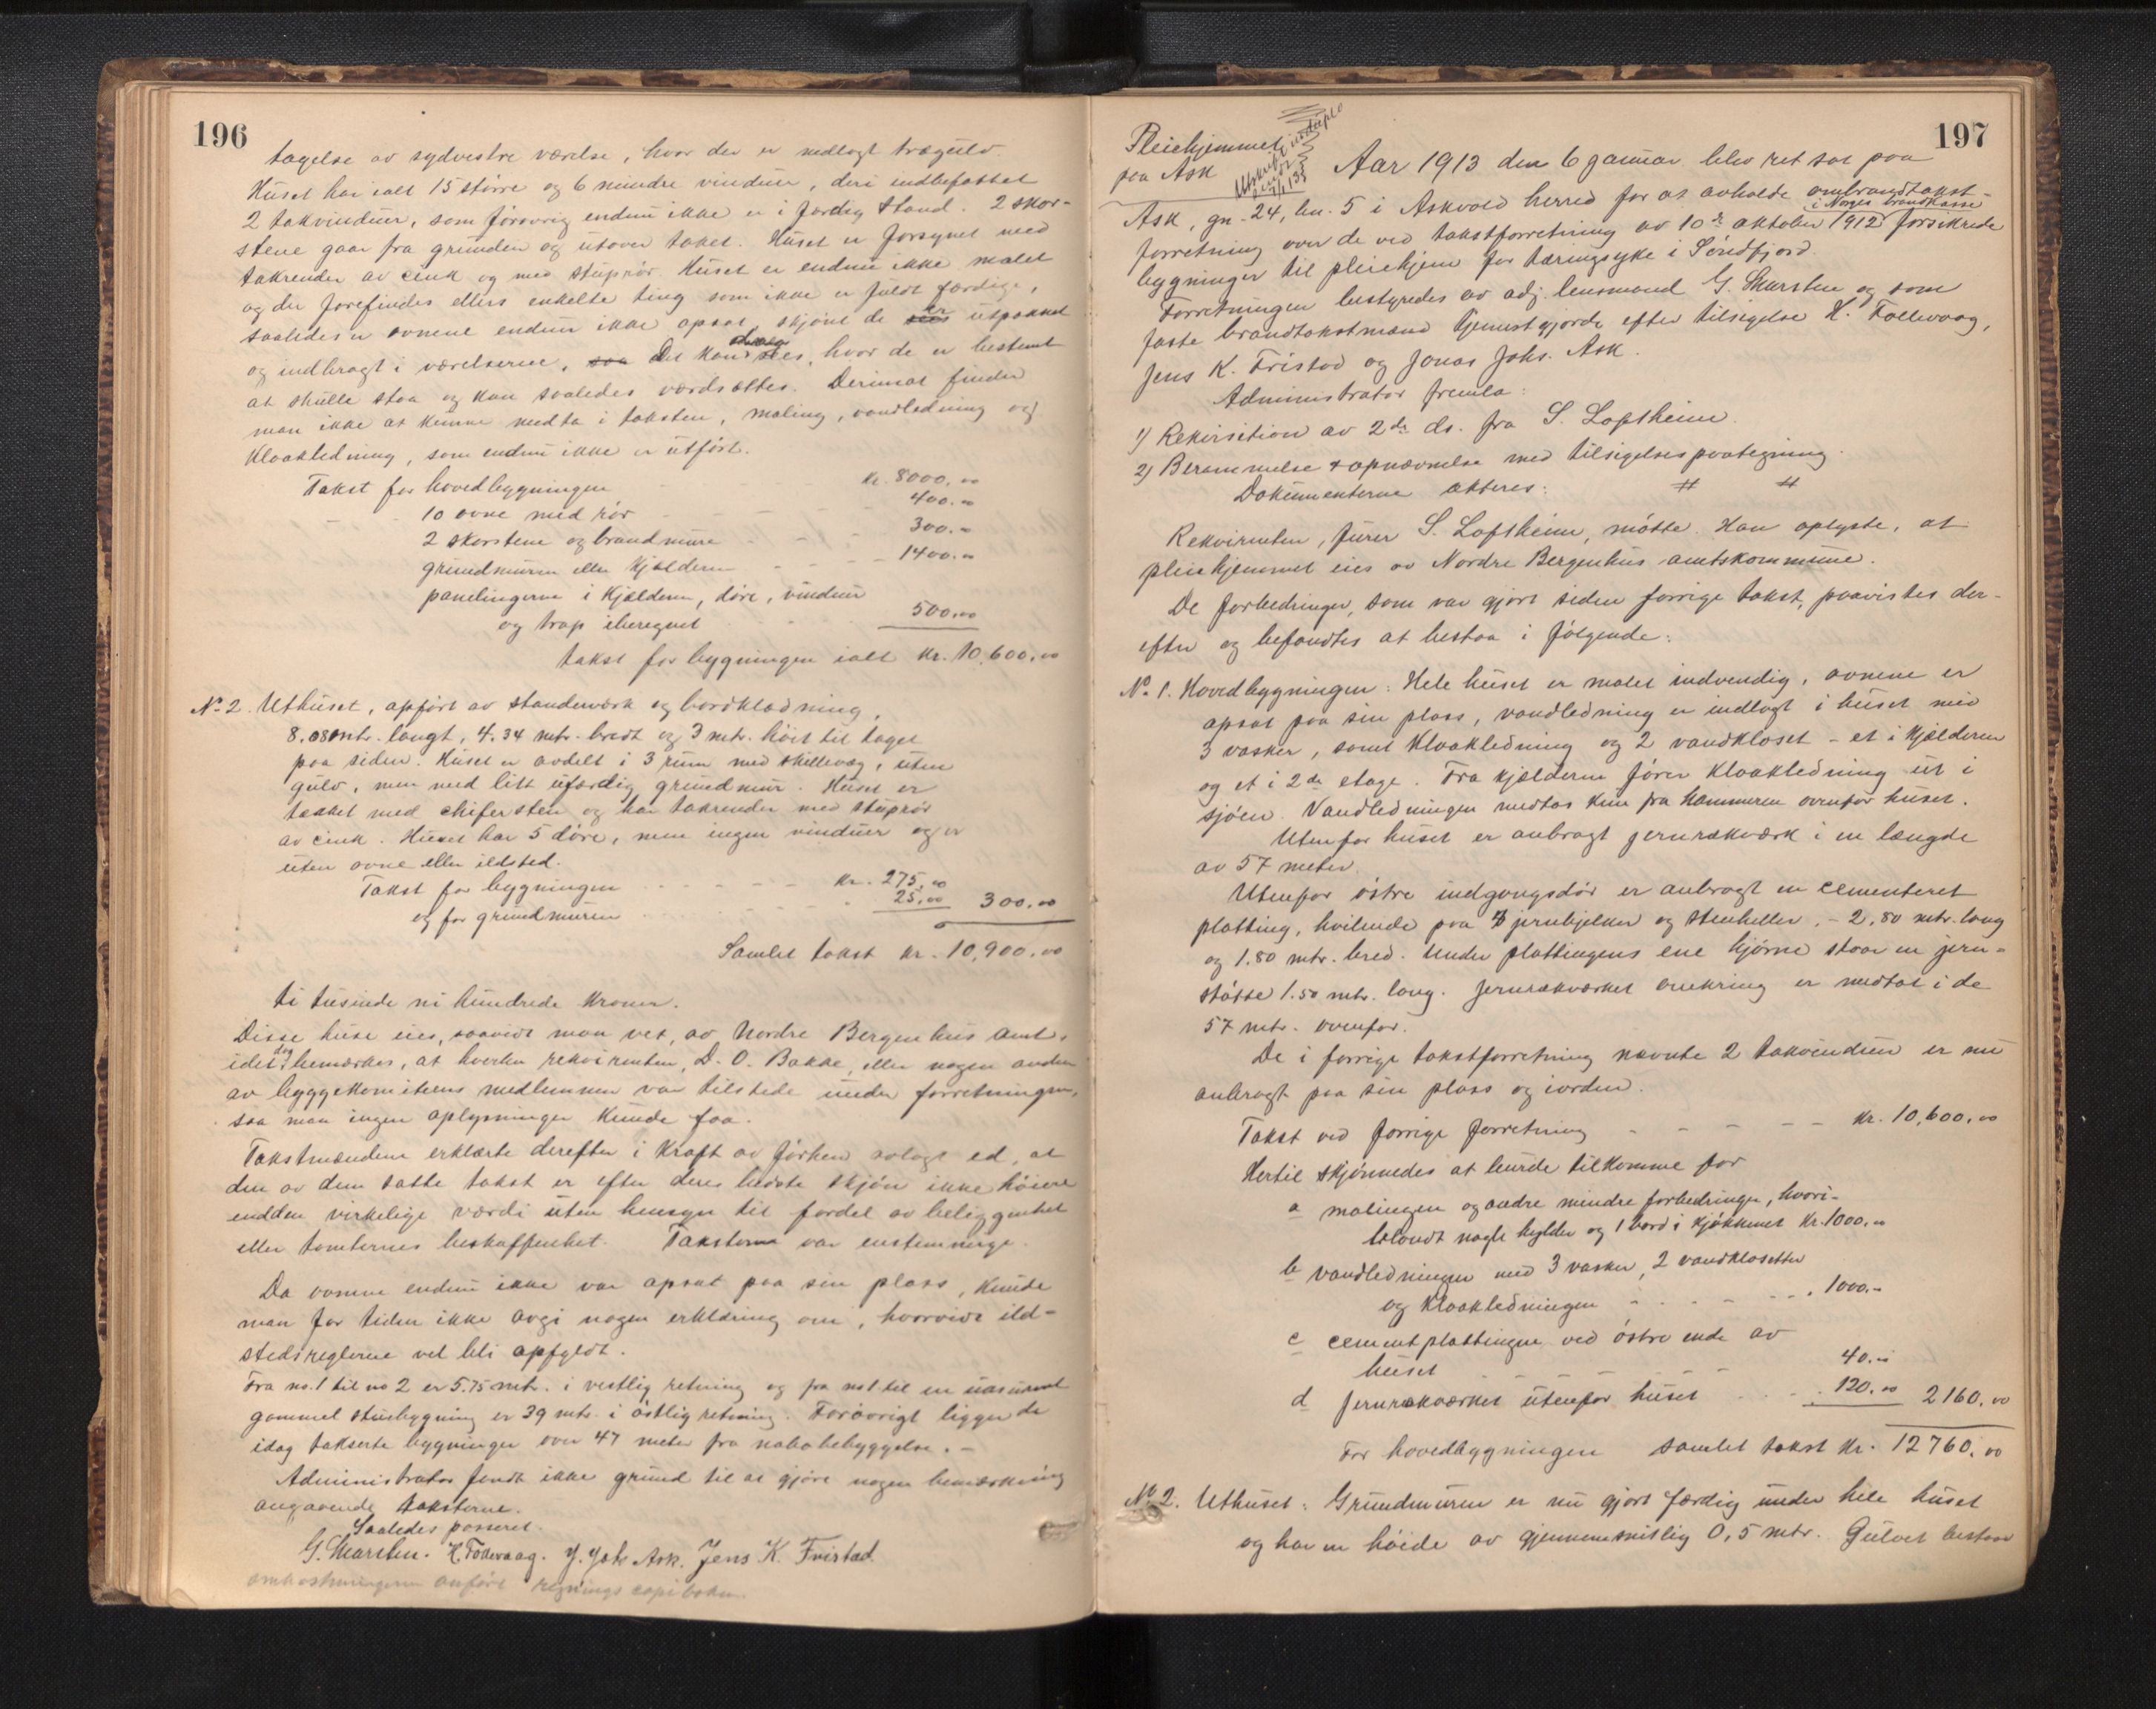 196
tagelse av sydvestre værelse, hvor der er nedlagt trægulv.
Huset har ialt 15 större og 6 mindre vinduer, deri indbefattet
2 takvinduer, som forövrig endnu ikke er i færdig stand. 2 skor-
stene gaar fra grunden og utover taket. Huset er forsynet med
takrender av cink og med stuprör. Huset er endnu ikke malet
og der forefindes ellers enkelte ting som ikke er fuldt færdige,
saaledes er ovnene endnu ikke opsat, skjönt de er utpakket
og indbragt i værelserne, saa Det kan sees, hvor de er bestemt
at skulle staa og kan saaledes værdsættes. Derimot finder
man ikke at kunne medta i taksten, maling, vandledning og
Kloakledning, som endnu ikke er utfört.
Takst for hovedbygningen kr. 8000.00
10 ovne med rör 400.00
2 skorstene og brandmure 300.-
grundmuren eller kjælderen 1400.00
panelingerne i kjælderen, döre, vinduer
og trap iberegnet 500.00
takst for bygningen ialt kr. 10,600.00
No 2. Uthuset, opfört av standerværk og bordklædning,
8.08 mtr. langt, 4.34 mtr. bredt og 3 mtr. höit til taget
paa siden. Huset er avdelt i 3 rum med skillevæg, uten
gulv, men med litt ufærdig grundmur. Huset er
tækket med chifersten og har takrender med stuprör
av cink. Huset har 5 döre, men ingen vinduer og er
uten ovne eller ildsted.
Takst for bygningen kr. 275.00
og for grundmuren 25.00 300.00
Samlet takst kr. 10,900.00
ti tusinde ni hundrede kroner.
Disse huse eies, saavidt man vet, av Nordre Bergenhus Amt,
idet dog bemærkes, at hverken rekvirenten, D. O. Bakke, eller nogen anden
av byggekomiteens medlemmer var tilstede under forretningen,
saa man ingen oplysninger kunde faa.
Takstmændene erklærte derefter i kraft av förhen avlagt ed, at
den av dem satte takst er efter deres bedste skjön ikke höiere
end den virkelige værdi uten hensyn til fordel av beliggenhet
eller tomternes beskaffenhet. Taksterne var enstemmige.
Da ovnene endnu ikke var opsat paa sin plass, kunde
man for tiden ikke avgi nogen erklæring om, hvorvidt ild-
stedsreglerne vil bli opfyldt.
Fra no. 1 til no 2 er 5.75 mtr. i vestlig retning og fra no 1 til en uassurert
gammel stuebygning er 39 mtr. i östlig retning. Forövrigt ligger de
idag takserte bygninger over 47 meter fra nabobebyggelse. -
Administrator fandt ikke grund til at gjöre nogen bemærkning
angaaende taksterne.
Saaledes passeret.
G. Marsten. H. Follevaag. J. Joh. Ask. Jens K. Fristad.
omkostningerne anfört regnings copiboken
197
Pleiehjemmet
paa Ask
Aar 1913 den 6 januar blev ret sat paa
Ask, gn. 24, bn. 5 i Askvold herred for at avholde ombrandtakst-
i Norges brandkasse
forretning over de ved takstforretning av 10de oktober 1912 forsikrede
bygninger til pleiehjem for tæringsyke i Söndfjord.
Forretningen bestyredes av adj. lensmand G. Marsten og som
faste brandtakstmænd tjenestgjorde efter tilsigelse H. Follevaag,
Jens K. Fristad og Jonas Johs. Ask.
Administrator fremla:
1) Rekvisition av 2de ds. fra S. Loftheim.
2) Berammelse & opnævnelse med tilsigelsespaategning.
Dokumenterne akteres: # #
Rekvirenten, furer S. Loftheim, mötte. Han oplyste, at
pleiehjemmet eies av Nordre Bergenhus amtskommune.
De forbedringer, som var gjort siden forrige takst, paavistes der-
efter og befandtes at bestaa i fölgende:
No. 1. Hovedbygningen: Hele huset er malet indvendig, ovnene er
opsat paa sin plass, vandledning er indlagt i huset med
3 vasker, samt kloakledning og 2 vandkloset - et i kjælderen
og et i 2de etage. Fra kjælderen förer kloakledning ut i
sjöen. Vandledningen medtas kun fra kammeren ovenfor huset.
Utenfor huset er anbragt jernrækværk i en længde
av 57 meter.
Utenfor östre indgangsdör er anbragt en cementeret
platting, hvilende paa 3 jernbjelker og stenheller, - 2.80 mtr. lang
og 1.80 mtr. bred. Under plattingens ene hjörne staar en jern-
stötte 1.50 mtr. lang. Jernrækværket omkring er medtat i de
57 mtr. ovenfor.
De i forrige takstforretning nævnte 2 takvinduer er nu
anbragt paa sin plass og iorden.
Takst ved forrige forretning kr. 10,600.00
Hertil skjönnedes at burde tilkomme for
a malingen og andre mindre forbedringer, hvori-
blandt nogle hylder og 1 bord i kjökkenet kr. 1000.00
b vandledningen med 3 vasker, 2 vandklosetter
og kloakledningen 1000.-
c cementplattingen ved östre ende av
huset 40.00
d Jernrækværket utenfor huset 120.00 2160.00
For hovedbygningen samlet takst kr. 12760.00
No 2. Uthuset: Grundmuren er nu gjort færdig under hele huset
og har en höide av gjennemsnitlig 0,5 mtr. Gulvet bestaar